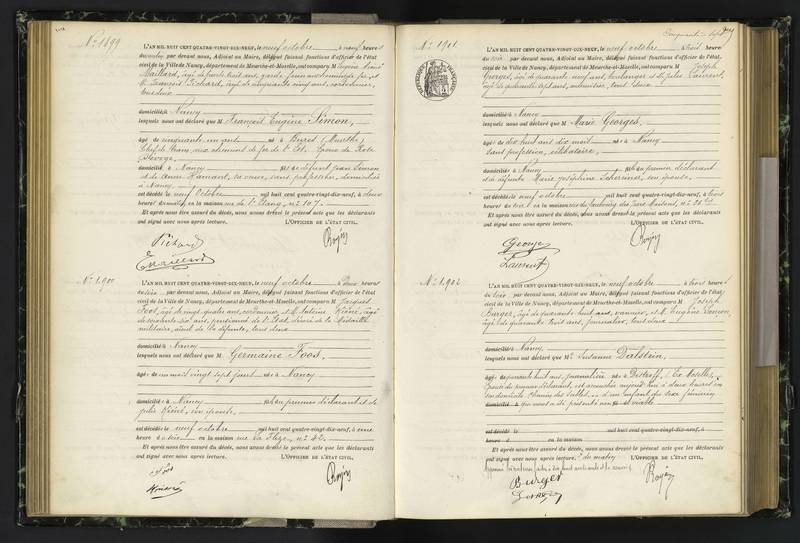 N° 1899
L'AN MIL HUIT CENT QUATRE-VINGT-DIX-NEUF, le neuf octobre à neuf heures
du matin par devant nous, Adjoint au Maire, délégué faisant fonctions d'officier de l'état
civil de la Ville de Nancy, département de Meurthe-et-Moselle, ont comparu M Eugène
Maillard, âgé de trente huit ans, garde
M François Richard, âgé de cinquante cinq ans, cordonnier,
tous deux
domiciliés à Nancy
lesquels nous ont déclaré que M François Eugène Simon,
âgé de cinquante un ans né à Bures (Meurthe)
chemins de fer de l'Est. Époux de
domicilié à Nancy fils de défunt Jean Simon
et de Anne sa veuve, sans profession, domiciliée
à Nancy
est décédé le neuf octobre mil huit cent quatre-vingt-dix-neuf, à deux
heures du matin, en la maison rue de l'Étang, n° 107.
Et après nous être assuré du décès, nous avons dressé le présent acte que les déclarants
ont signé avec nous après lecture. L'OFFICIER DE L'ÉTAT CIVIL,
Richard
Maillard
N° 1.900
L'AN MIL HUIT CENT QUATRE-VINGT-DIX-NEUF, le neuf octobre à deux heures
du soir par devant nous, Adjoint au Maire, délégué faisant fonctions d'officier de l'état
civil de la Ville de Nancy, département de Meurthe-et-Moselle, ont comparu M Jacques
Foos, âgé de vingt quatre ans, cordonnier, et M Antoine âgé
de soixante dix ans, pensionné de l'État, décoré de la Médaille
militaire, aïeul de la défunte, tous deux
domiciliés à Nancy
lesquels nous ont déclaré que M Germaine Foos,
âgée de un mois vingt sept jours née à Nancy
domiciliée à Nancy fille du premier déclarant et de
Julie son épouse,
est décédée le neuf octobre mil huit cent quatre-vingt-dix-neuf, à une
heure du soir en la maison rue la Flize, n° 42.
Et après nous être assuré du décès, nous avons dressé le présent acte que les déclarants
ont signé avec nous après lecture. L'OFFICIER DE L'ÉTAT CIVIL,
Foos
Cinquante-sept
N° 1901
RÉPUBLIQUE FRANÇAISE
L'AN MIL HUIT CENT QUATRE-VINGT-DIX-NEUF, le neuf octobre à trois heures
du soir par devant nous, Adjoint au Maire, délégué faisant fonctions d'officier de l'état
civil de la Ville de Nancy, département de Meurthe-et-Moselle, ont comparu M Joseph
Georges, âgé de quarante neuf ans, boulanger et M Jules Laurent,
âgé de quarante sept ans, tous deux
domiciliés à Nancy
lesquels nous ont déclaré que M Marie Georges,
âgée de dix huit ans dix mois née à Nancy
sans profession, célibataire,
domiciliée à Nancy fille du premier déclarant
et de défunte Marie Joséphine son épouse,
est décédée le neuf octobre mil huit cent quatre-vingt-dix-neuf, à trois
heures du en la maison rue du Faubourg des Trois Maisons, n°
Et après nous être assuré du décès, nous avons dressé le présent acte que les déclarants
ont signé avec nous après lecture. L'OFFICIER DE L'ÉTAT CIVIL,
Georges
Laurent
N° 1.902
L'AN MIL HUIT CENT QUATRE-VINGT-DIX-NEUF, le neuf octobre à trois heures
du soir par devant nous, Adjoint au Maire, délégué faisant fonctions d'officier de l'état
civil de la Ville de Nancy, département de Meurthe-et-Moselle, ont comparu M Joseph
Burger, âgé de quarante huit ans, vannier, et M Eugène
âgé de quarante huit ans, journalier, tous deux
domiciliés à Nancy
lesquels nous ont déclaré que M Susanne Dalstein,
âgée de quarante huit ans, journalière née à Distroff, (Ex Moselle),
Épouse du premier déclarant, est accouchée aujourd'hui à deux heures
en son domicile chemin des Sables d'un enfant du sexe féminin
domicilié à qui nous a été présenté non et viable
est décédé le mil huit cent quatre-vingt-dix-neuf, à
heure d en la maison
Et après nous être assuré du décès, nous avons dressé le présent acte que les déclarants
ont signé avec nous après lecture. du matin L'OFFICIER DE L'ÉTAT CIVIL,
Burger